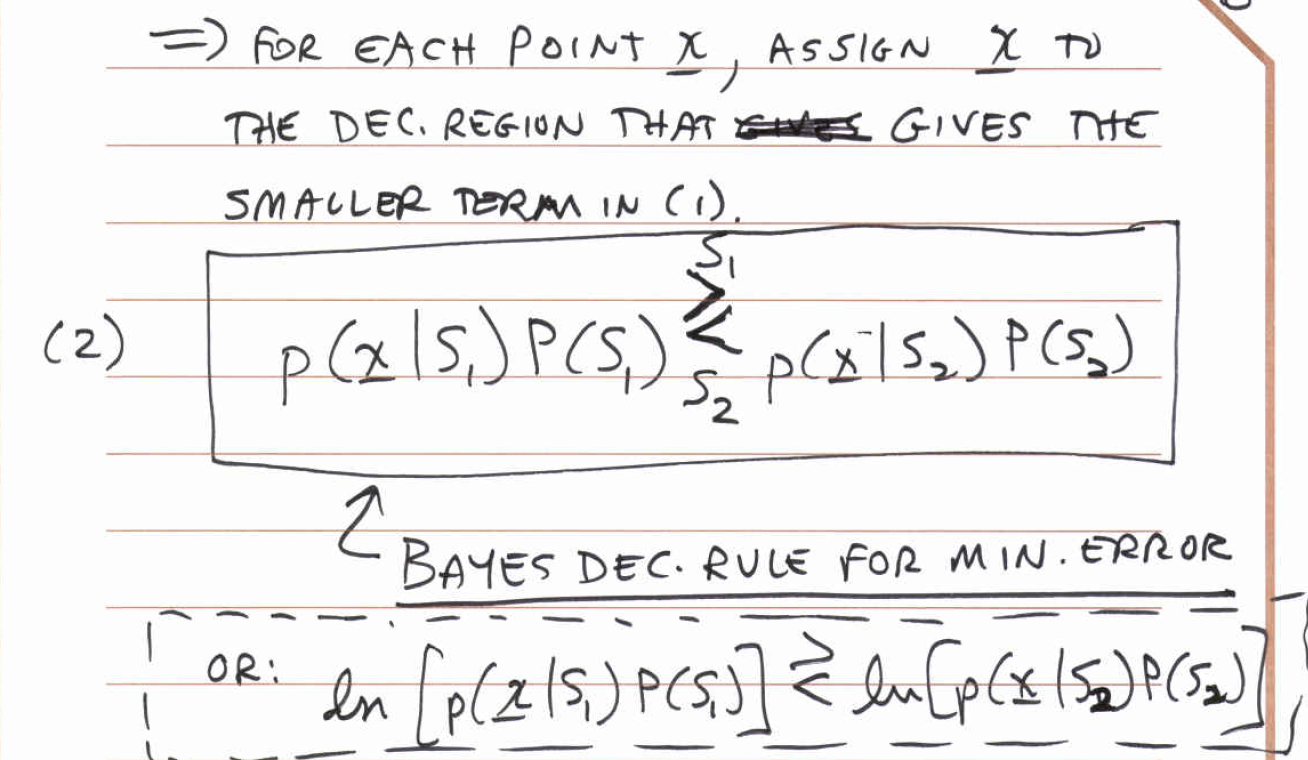 ⇒ FOR EACH POINT x, ASSIGN x TO
THE DEC. REGION THAT GIVES THE
SMALLER TERM IN (1).
S₁
(2) p(x|S₁)P(S₁) ≷ p(x|S₂)P(S₂)
S₂
BAYES DEC. RULE FOR MIN. ERROR
OR: ln[p(x|S₁)P(S₁)] ≷ ln[p(x|S₂)P(S₂)]